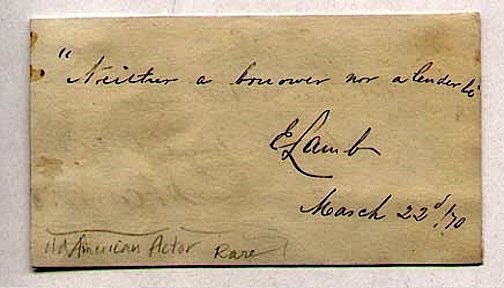 "Neither a borrower nor a lender be"
E Lamb
March 22d, '70
old American Actor Rare